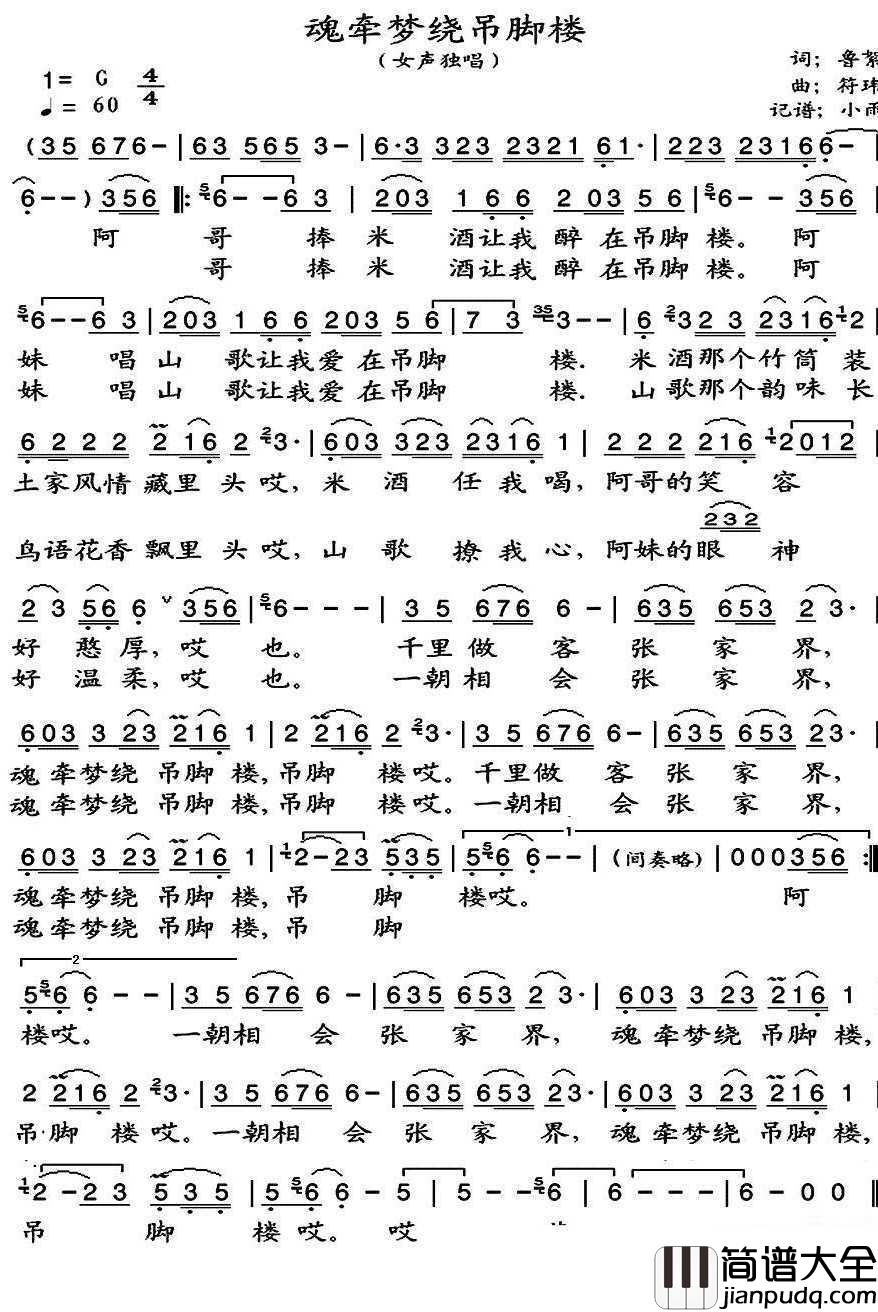 魂牵梦绕吊脚楼
（女声独唱）
1= G 4/4
词；鲁絮
♩= 60
曲；符玮
记谱；小雨
（35 676–|63 565 3–|6·3 323 2321 61·|223 23166–|
6––）356 ‖:56––63|203 166 203 56|56–– 356|
阿 哥 捧 米 酒让我 醉 在吊脚 楼。阿
哥 捧 米 酒让我 醉 在吊脚 楼。阿
56––63|203 166 203 56|7 3 353––|6 23 23 2316 12|
妹 唱山 歌让我爱 在吊脚 楼．米 酒那个竹筒装
妹 唱山 歌让我爱 在吊脚 楼．山 歌那个韵味长
6222 216 2 23·|603 323 2316 1|222 216 12012|
土家风情 藏里 头 哎，米 酒 任 我 喝，阿哥的笑 容
232
鸟语花香 飘里 头 哎，山 歌 撩 我 心，阿妹的眼 神
23 56 6 ∨ 356|56–––|35 676 6–|635 653 23·|
好 憨 厚，哎 也。 千里做 客 张 家 界，
好 温 柔，哎 也。 一朝相 会 张 家 界，
603 323 216 1|2 216 2 23·|35 676 6–|635 653 23·|
魂牵梦绕 吊脚 楼，吊脚 楼哎。千里做 客 张 家 界，
魂牵梦绕 吊脚 楼，吊脚 楼哎。一朝相 会 张 家 界，
603 323 216 1|12–23 535|1 556 6––|（间奏略）|000356:‖
魂牵梦绕 吊脚 楼，吊 脚 楼哎。 阿
魂牵梦绕 吊脚 楼，吊 脚
2
556 6––|35 676 6–|635 653 23·|603 323 216 1
楼哎。 一朝相 会 张 家 界， 魂牵梦绕 吊脚 楼，
2 216 2 23·|35 676 6–|635 653 23·|603 323 216 1|
吊·脚 楼哎。一朝相 会 张 家 界， 魂牵梦绕 吊脚 楼，
12–23 535|556 6–5|5––56|6–––|6–00‖
吊 脚 楼哎。哎
简谱大全
jianpudq.com